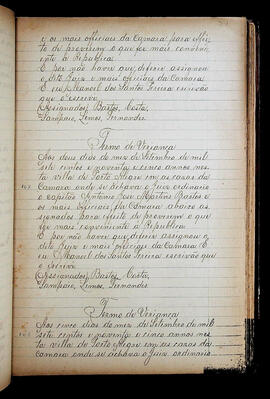 e os mais officiaes da Camara para effei-
to de proverem o que for mais conveni-
ente á Republica
E por não haver que deferir assignou
o dito Juiz e mais officiaes da Camara
E eu Manoel dos Santos Pereira escrivão
que o escrevi
(Assignados) Bastos, Costa,
Sampaio, Lemos, Fernandes
Termo de Veriança
Aos dous dias do mez de Setembro de mil
sete centos e noventa e cinco annos nes-
ta villa de Porto Alegre em as casas da
Camara onde se achava o Juiz ordinario
o capitão Antonio José Martins Bastos e
os mais officiaes da Camara abaixo as-
signados para effeito de proverem o que
for mais conveniente á Republica
E por não haver que deferir assignou o
dito Juiz e mais officiaes da Camara E
eu Manoel dos Santos Pereira escrivão que
o escrevi
(Assignados) Bastos, Costa,
Sampaio, Lemos, Fernandes
Termo de Veriança
Aos cinco dias do mez de Setembro de mil
sete centos e noventa e cinco annos nes-
ta villa de Porto Alegre em as casas da
Camara onde se achava o Juiz ordinario